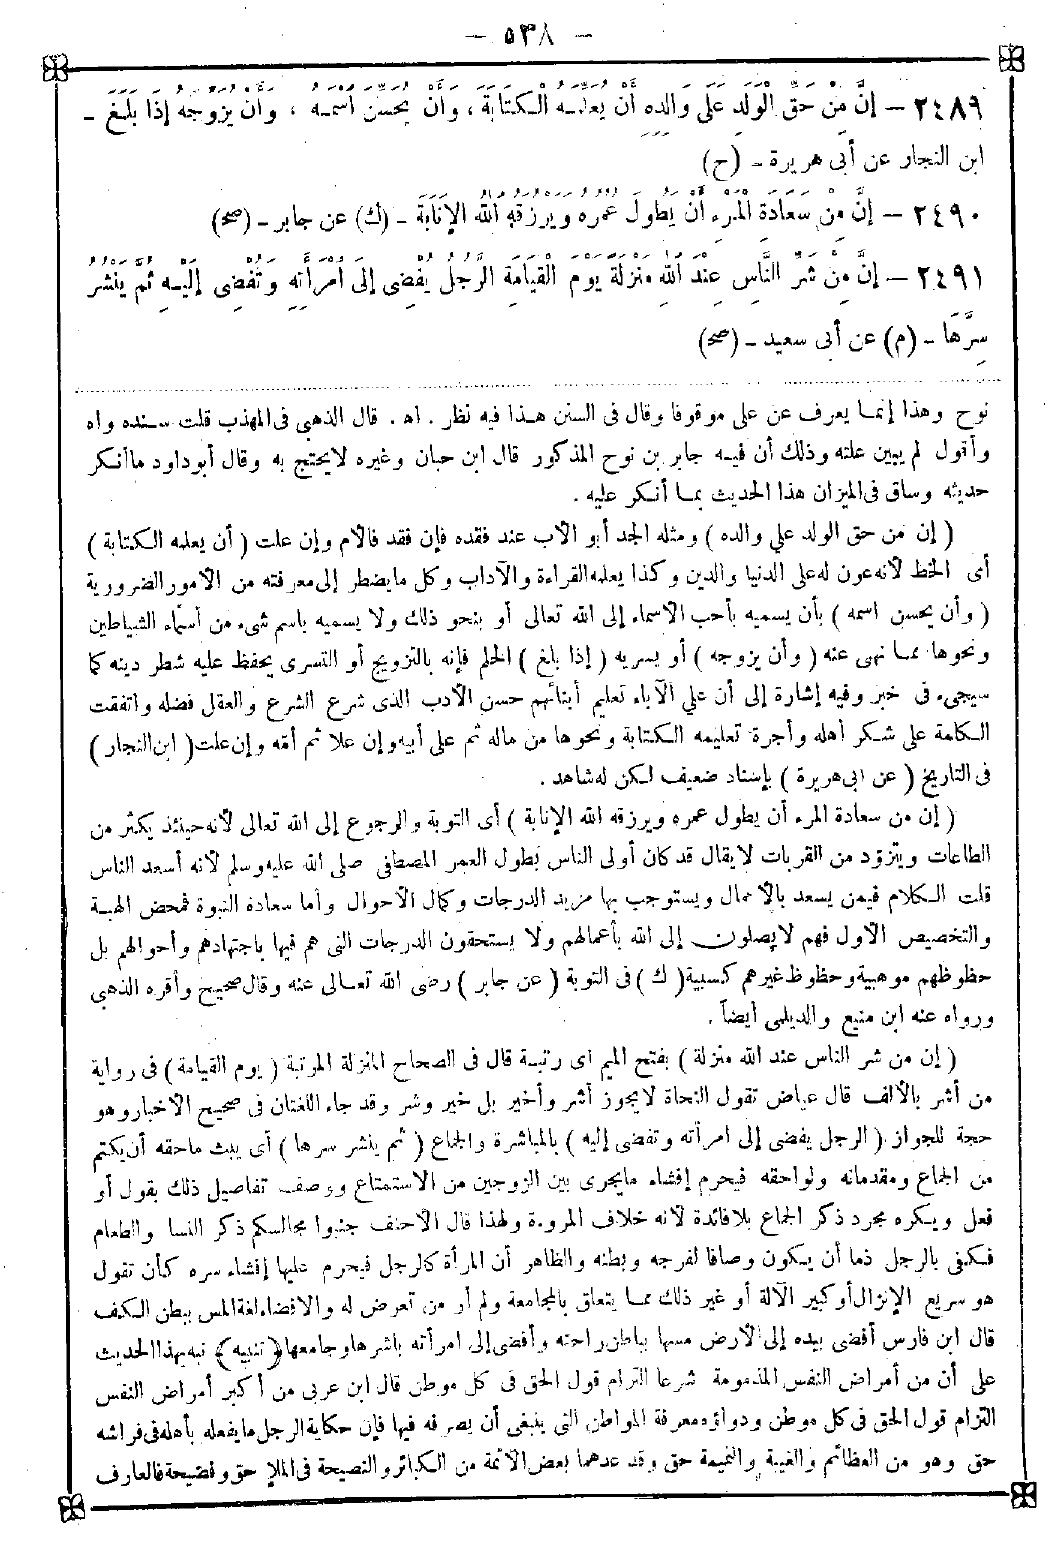 - ٥٣٨ -
٢٤٨٩ - إِنَّ مِنْ حَقِّ الْوَلَدِ عَلَى وَالِدِهِ أَنْ يُعَلِّمَهُ الْكِتَابَةَ، وَأَنْ يُحَسِّنَ اسْمَهُ ، وَأَنْ يُزَوِّجَهُ إِذَا بَلَغَ -
ابن النجار عن أبى هريرة - (ح)
٢٤٩٠ - إِنَّ مِنْ سَعَادَةِ الْمَرْءِ أَنْ يَطُولَ عُمُرُهُ وَيَرْزُقَهُ اللهُ الإِنَابَةَ - (ك) عن جابر - (صح)
٢٤٩١ - إِنَّ مِنْ شَرِّ النَّاسِ عِنْدَ اللهِ مَنْزِلَةً يَوْمَ الْقِيَامَةِ الرَّجُلُ يُفْضِى إِلَى امْرَأَتِهِ وَتُفْضِى إِلَيْهِ ثُمَّ يَنْشُرُ
سِرَّهَا - (م) عن أبى سعيد - (صح)
نوح وهذا إنما يعرف عن على موقوفا وقال فى السنن هذا فيه نظر . اه . قال الذهبى فى المهذب قلت سنده واه
وأقول لم يبين علته وذلك أن فيه جابر بن نوح المذكور قال ابن حبان وغيره لايحتج به وقال أبو داود ماأنكر
حديثه وساق فى الميزان هذا الحديث بما أنكر عليه .
( إن من حق الولد على والده ) ومثله الجد أبو الأب عند فقده فإن فقد فالأم وإن علت ( أن يعلمه الكتابة )
أى الخط لأنه عون له على الدنيا والدين وكذا يعلمه القراءة والآداب وكل مايضطر إلى معرفته من الأمور الضرورية
( وأن يحسن اسمه ) بأن يسميه بأحب الأسماء إلى الله تعالى أو بنحو ذلك ولا يسميه باسم شىء من أسماء الشياطين
ونحوها مما نهى عنه ( وأن يزوجه ) أو يسريه ( إذا بلغ ) الحلم فإنه بالتزويج أو التسرى يحفظ عليه شطر دينه كما
سيجىء فى خبر وفيه إشارة إلى أن على الآباء تعليم أبنائهم حسن الأدب الذى شرع الشرع والعقل فضله واتفقت
الكلمة على شكر أهله وأجرة تعليمه الكتابة ونحوها من ماله ثم على أبيه وإن علا ثم أمه وإن علت ( ابن النجار )
فى التاريخ ( عن ابى هريرة ) بإسناد ضعيف لكن له شاهد .
( إن من سعادة المرء أن يطول عمره ويرزقه الله الإنابة ) أى التوبة والرجوع إلى الله تعالى لأنه حينئذ يكثر من
الطاعات ويتزود من القربات لايقال قد كان أولى الناس بطول العمر المصطفى صلى الله عليه وسلم لأنه أسعد الناس
قلت الكلام فيمن يسعد بالأعمال ويستوجب بها مزيد الدرجات وكمال الأحوال وأما سعادة النبوة فمحض الهبة
والتخصيص الأول فهم لايصلون إلى الله بأعمالهم ولا يستحقون الدرجات التى هم فيها باجتهادهم وأحوالهم بل
حظوظهم موهبية وحظوظ غيرهم كسبية ( ك ) فى التوبة ( عن جابر ) رضى الله تعالى عنه وقال صحيح وأقره الذهبى
ورواه عنه ابن منيع والديلمى أيضاً .
( إن من شر الناس عند الله منزلة ) بفتح الميم اى رتبة قال فى الصحاح المنزلة المرتبة ( يوم القيامة ) فى رواية
من أشر بالألف قال عياض تقول النحاة لايجوز أشر وأخير بل خير وشر وقد جاء اللغتان فى صحيح الأخبار وهو
حجة للجواز ( الرجل يفضى إلى امرأته وتفضى إليه ) بالمباشرة والجماع ( ثم ينشر سرها ) أى يبث ماحقه أن يكتم
من الجماع ومقدماته ولواحقه فيحرم إفشاء مايجرى بين الزوجين من الاستمتاع ووصف تفاصيل ذلك بقول أو
فعل ويكره مجرد ذكر الجماع بلا فائدة لأنه خلاف المروءة ولهذا قال الأحنف جنبوا مجالسكم ذكر النسا والطعام
فكفى بالرجل ذما أن يكون وصافا لفرجه وبطنه والظاهر أن المرأة كالرجل فيحرم عليها إفشاء سره كأن تقول
هو سريع الإنزال أو كبير الآلة أو غير ذلك مما يتعلق بالمجامعة ولم أر من تعرض له والافضاء لغة المس ببطن الكف
قال ابن فارس أفضى بيده إلى الأرض مسها بباطن راحته وأفضى إلى امرأته باشرها وجامعها (تنبيه) نبه بهذا الحديث
على أن من أمراض النفس المذمومة شرعا التزام قول الحق فى كل موطن قال ابن عربى من أكبر أمراض النفس
التزام قول الحق فى كل موطن ودواؤه معرفة المواطن التى ينبغى أن يصرفه فيها فإن حكاية الرجل مايفعله بأهله فى فراشه
حق وهو من العظائم والغيبة والنميمة حق وقد عدهما بعض الأئمة من الكبائر والنصيحة فى الملإ حق وفضيحة فالعارف